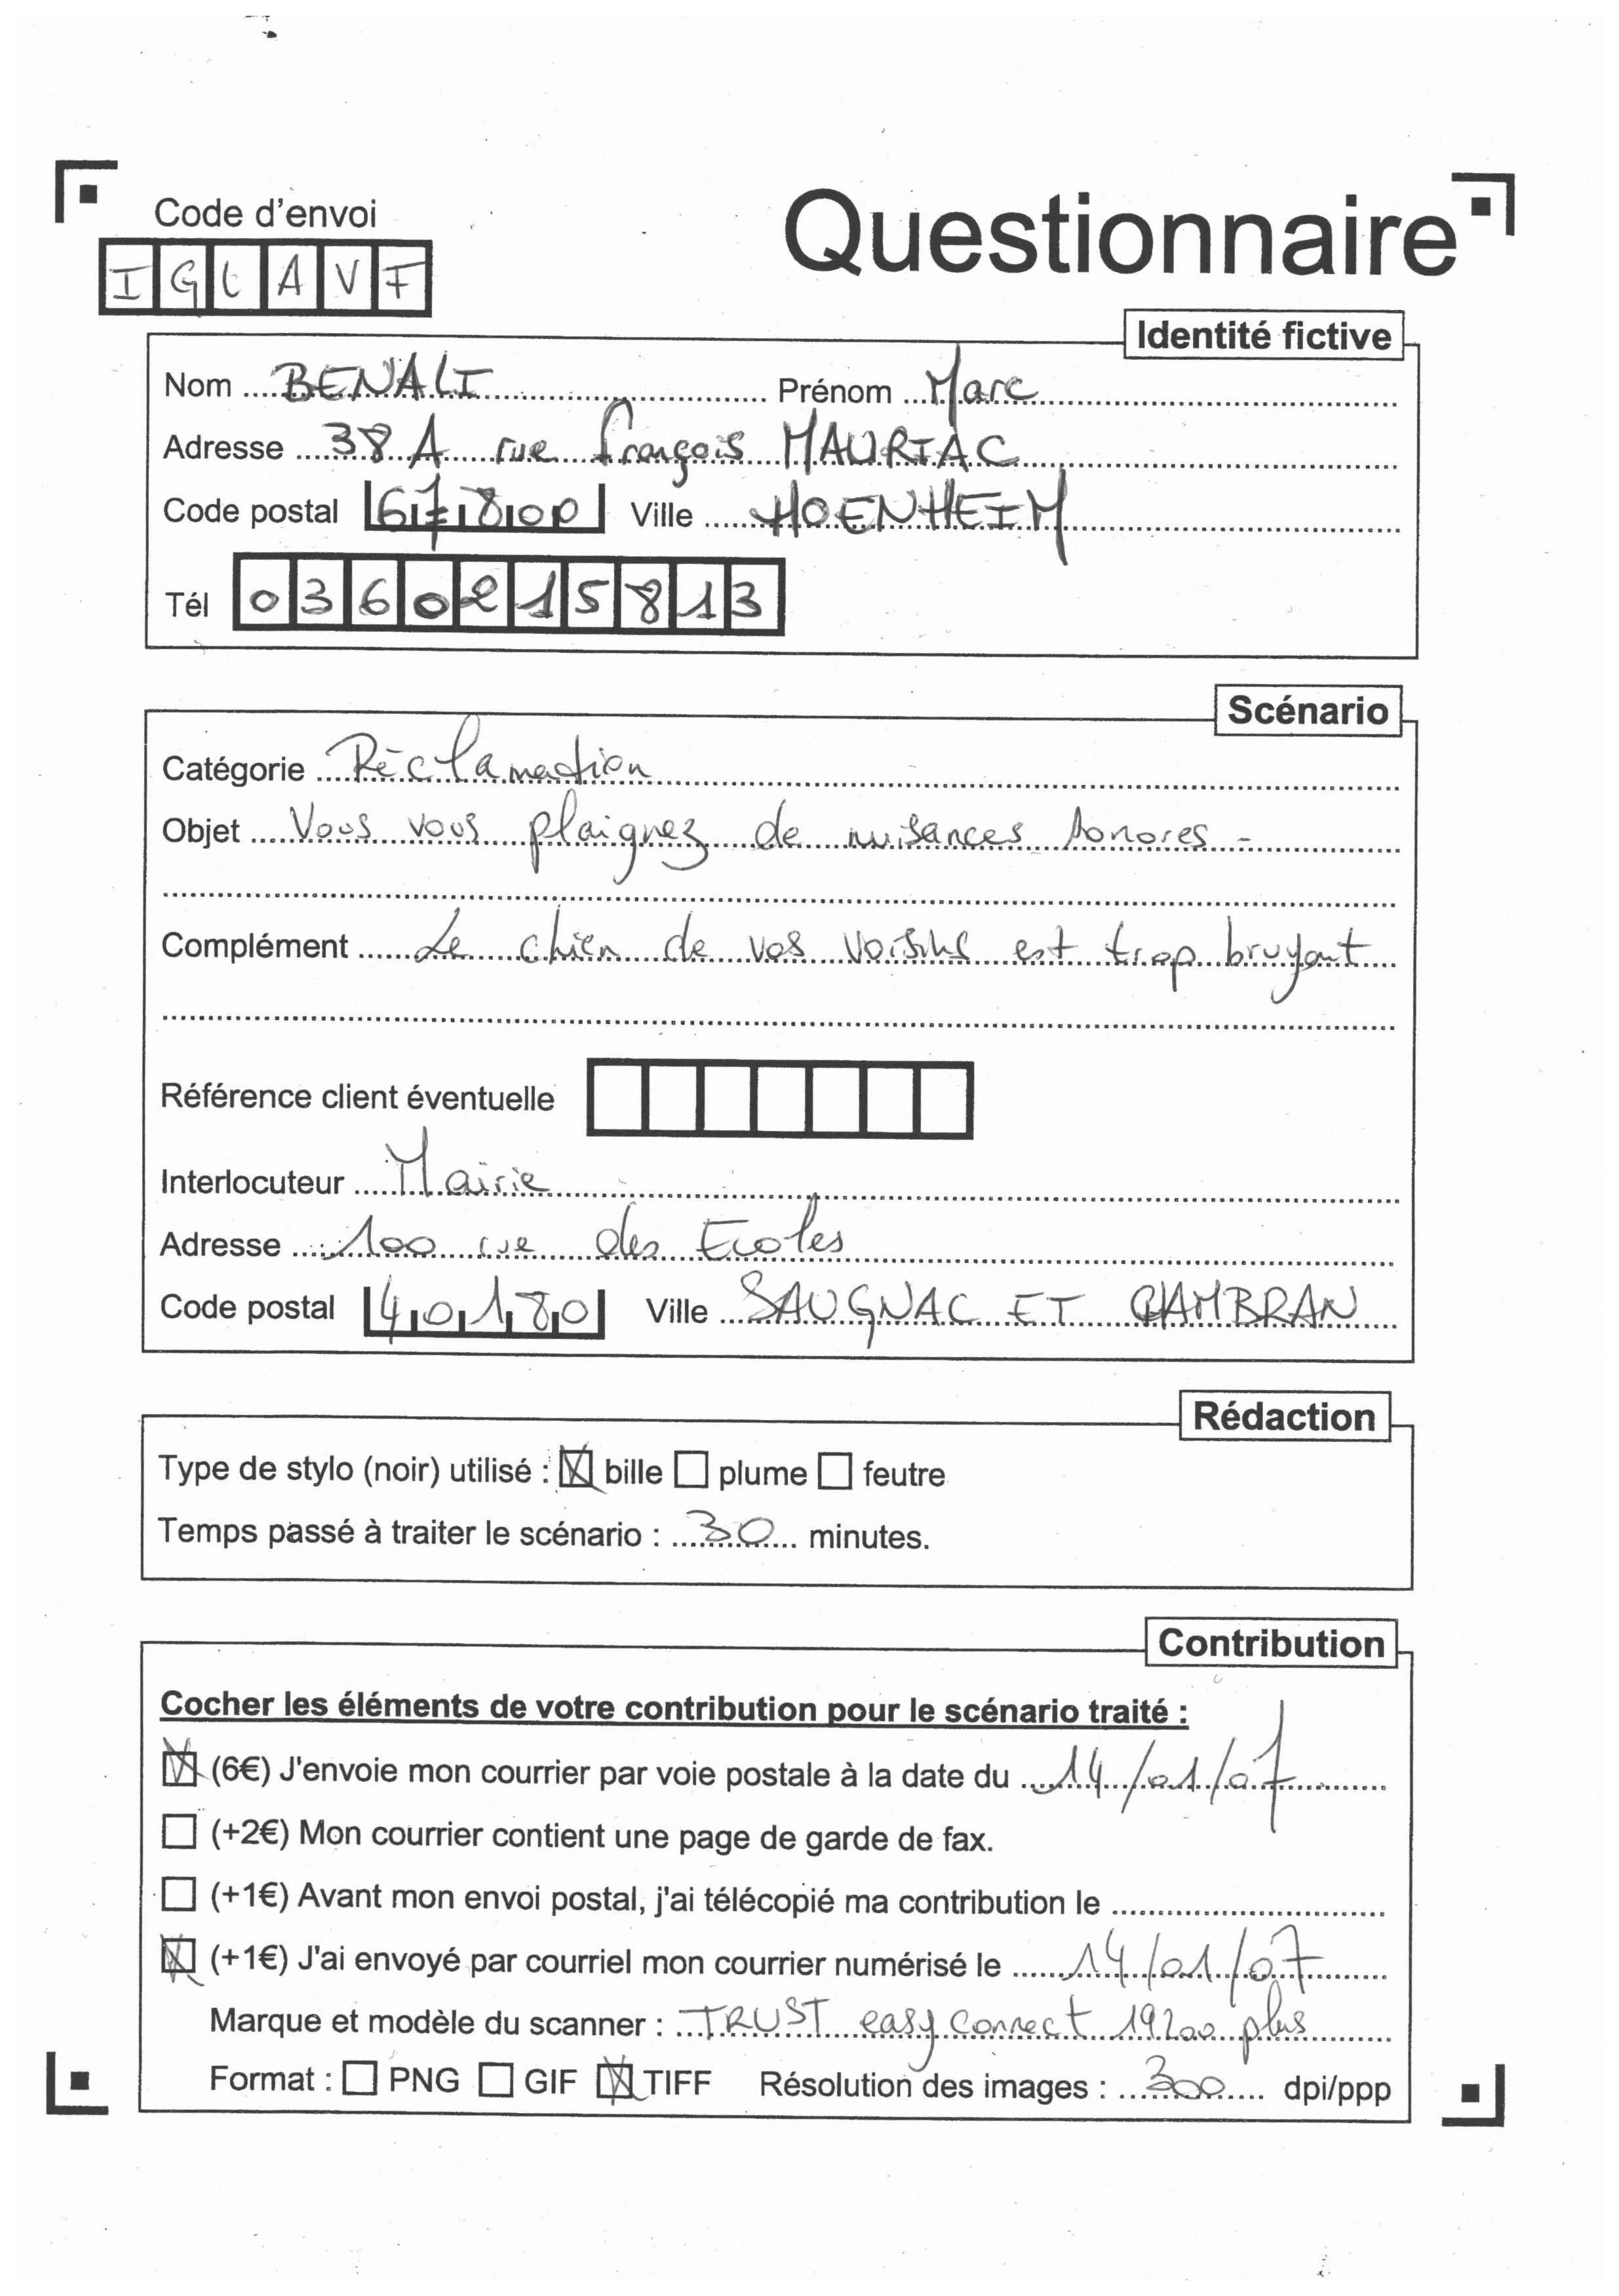 Code d'envoi
Questionnaire
IGLAVF
Identité fictive
Nom BENALI Prénom Marc
Adresse 38 A rue françois MAURIAC
Code postal 67800 Ville HOENHEIM
Tél 0360215813
Scénario
Catégorie Réclamation
Objet Vous vous plaignez de nuisances sonores -
Complément Le chien de vos voisins est trop bruyant
Référence client éventuelle
Interlocuteur Mairie
Adresse 100 rue des Ecoles
Code postal 40180 Ville SAUGNAC ET CAMBRAN
Rédaction
Type de stylo (noir) utilisé : ☒ bille ☐ plume ☐ feutre
Temps passé à traiter le scénario : 30 minutes.
Contribution
Cocher les éléments de votre contribution pour le scénario traité :
☒ (6€) J'envoie mon courrier par voie postale à la date du 14/01/07
☐ (+2€) Mon courrier contient une page de garde de fax.
☐ (+1€) Avant mon envoi postal, j'ai télécopié ma contribution le
☒ (+1€) J'ai envoyé par courriel mon courrier numérisé le 14/01/07
Marque et modèle du scanner : TRUST easy connect 19200 plus
Format : ☐ PNG ☐ GIF ☒ TIFF Résolution des images : 300 dpi/ppp